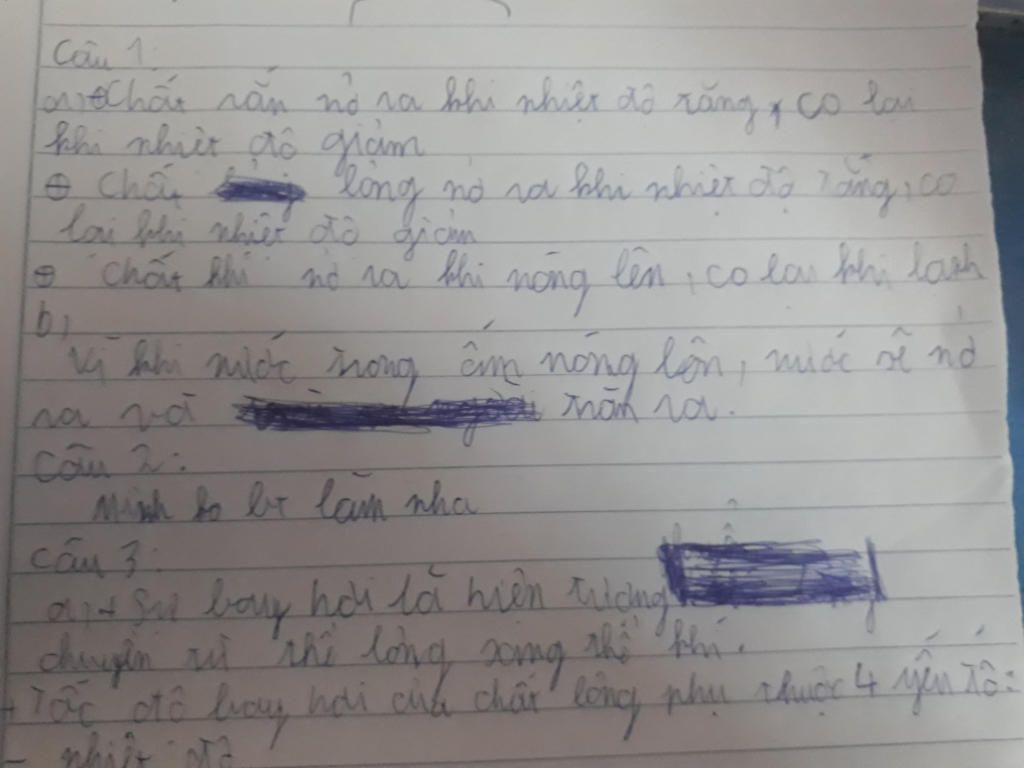 Câu 1:
a, ⊕ Chất rắn nở ra khi nhiệt độ tăng, co lại
khi nhiệt độ giảm
⊕ Chất lỏng nở ra khi nhiệt độ tăng, co
lại khi nhiệt độ giảm
⊕ Chất khí nở ra khi nóng lên, co lại khi lạnh
b,
Vì khi nước trong ấm nóng lên, nước sẽ nở
ra và tràn ra.
Câu 2:
Mình ko bt làm nha
Câu 3:
a, + Sự bay hơi là hiện tượng
chuyển từ thể lỏng sang thể khí.
+ Tốc độ bay hơi của chất lỏng phụ thuộc 4 yếu tố:
- nhiệt độ